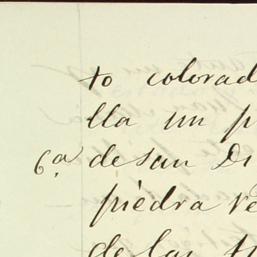 to colorad
lla un p
6.ª de san Di
piedra ve
de las